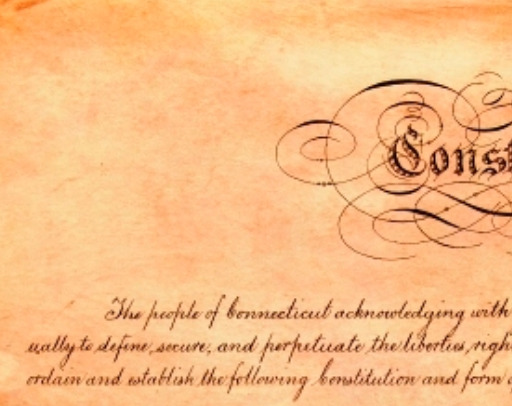 Const
The people of Connecticut acknowledging with
ually to define, secure, and perpetuate the liberties, righ
ordain and establish the following Constitution and form